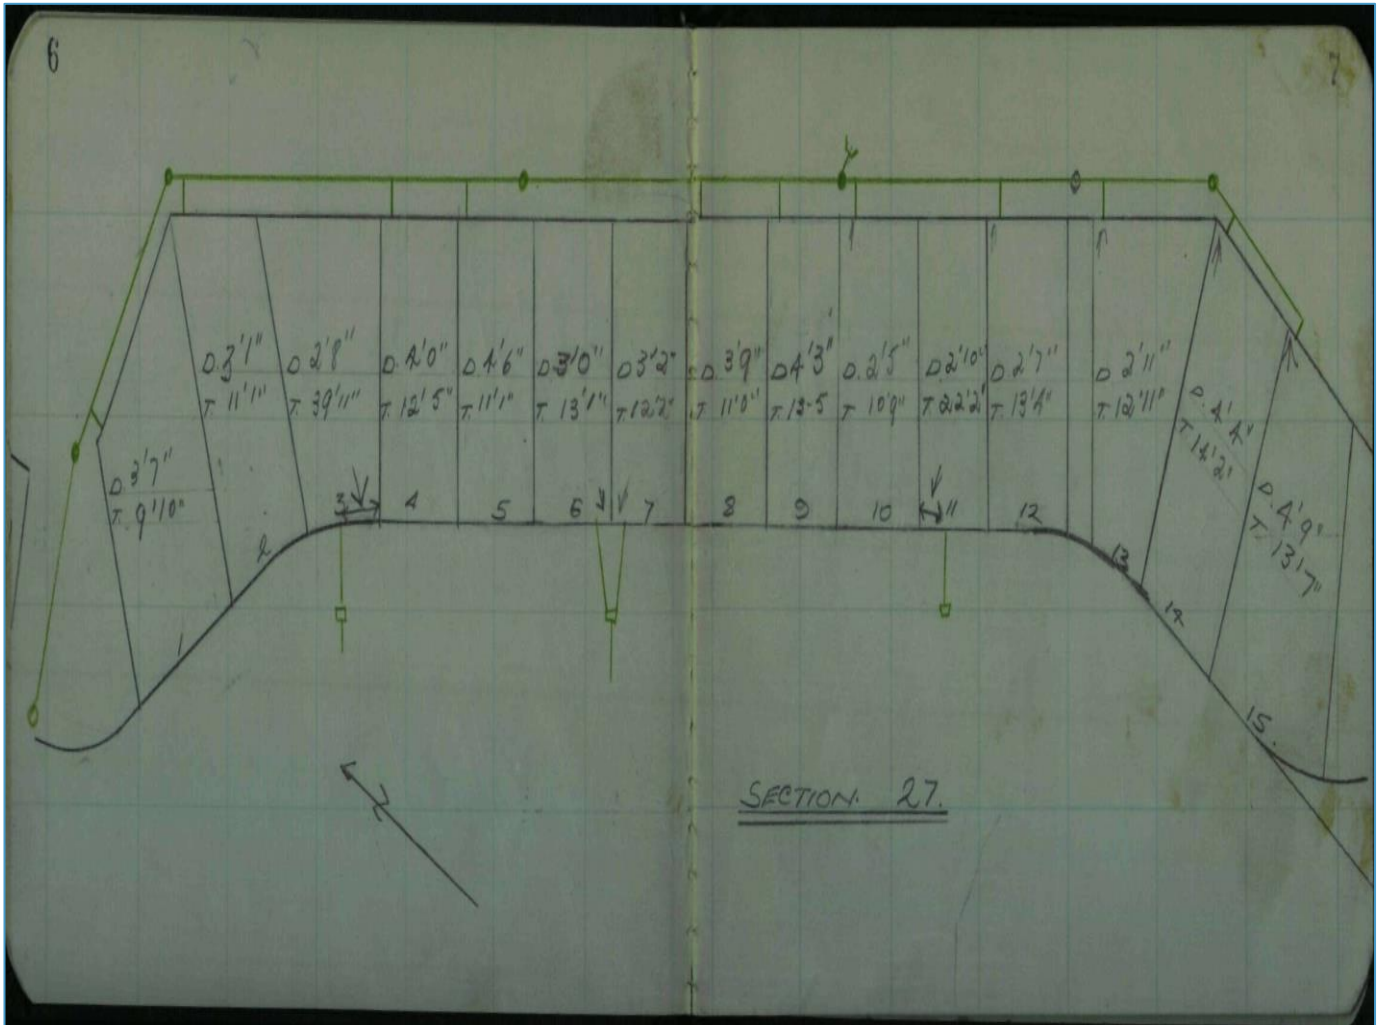 6
7
D. 3'7"
T. 9'10"
D. 3'1"
T. 11'1"
D. 2'8"
T. 39'11"
D. 4'0"
T. 12'5"
D. 4'6"
T. 11'1"
D 3'0"
T. 13'1"
D 3'2"
T. 12'2"
D. 3'9"
T. 11'0"
D 4'3"
T. 13-5
D. 2'5"
T. 10'9"
D. 2'10"
T. 22'2"
D. 2'7"
T. 13'4"
D. 2'11"
T. 12'11"
D. 4'4"
T. 14'2"
D. 4'9"
T. 13'7"
1
2
3
4
5
6
7
8
9
10
11
12
13
14
15.
SECTION. 27.